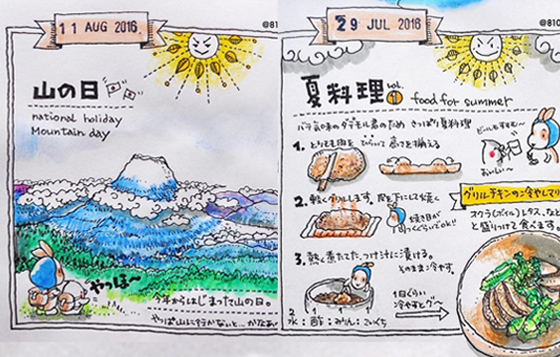 11 AUG 2016
山の日
national holiday
Mountain day
やっほ〜
今年からはじまって山の日。
やっぱ山に行かないと…かなあ
29 JUL 2016
@810
夏料理 vol.1
food for summer
バテ気味のダテモル君のため さっぱり夏料理
1. とりもも肉を ひらいて 高さを揃える
ビールもすすむ〜
おいしい〜
2. 軽くグリルします。皮を下にして焼く
焼き目が
つくくらいでOK!!
グリルチキンの冷やして
オクラ(ボイル)レタス、
と盛りつけて食べます。
3. 熱く蒸れてた、つけ汁に漬ける。
そのまま冷やす。
1日ぐらい
冷やすとグ〜
水:酢:みりん:こいくち